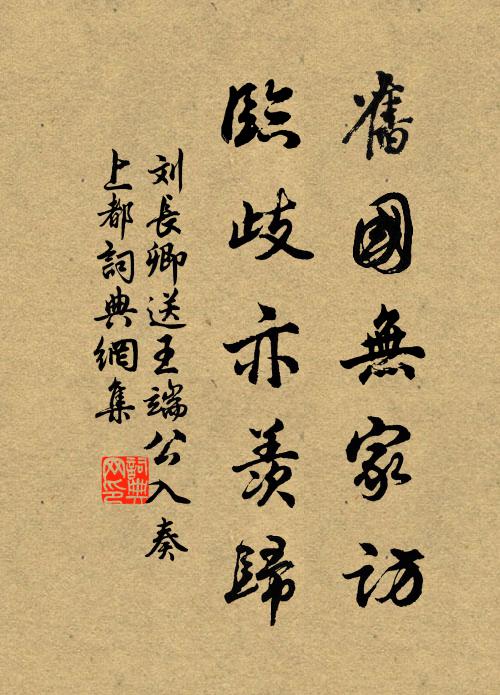 舊國無家訪
臨歧亦羨歸
刘長卿送王端公入奏
上都詞典網集
詞典网印